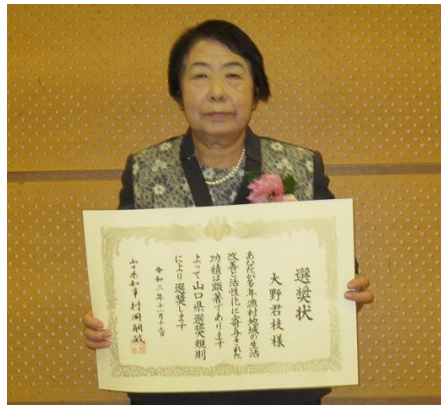 選奨状
大野君枝様
あなたが多年漁村地域の生活
改善と活性化に寄与された
功績は顕著であります
よって山口県選奨規則
により選奨します
令和三年十一月十日
山口県知事村岡嗣政